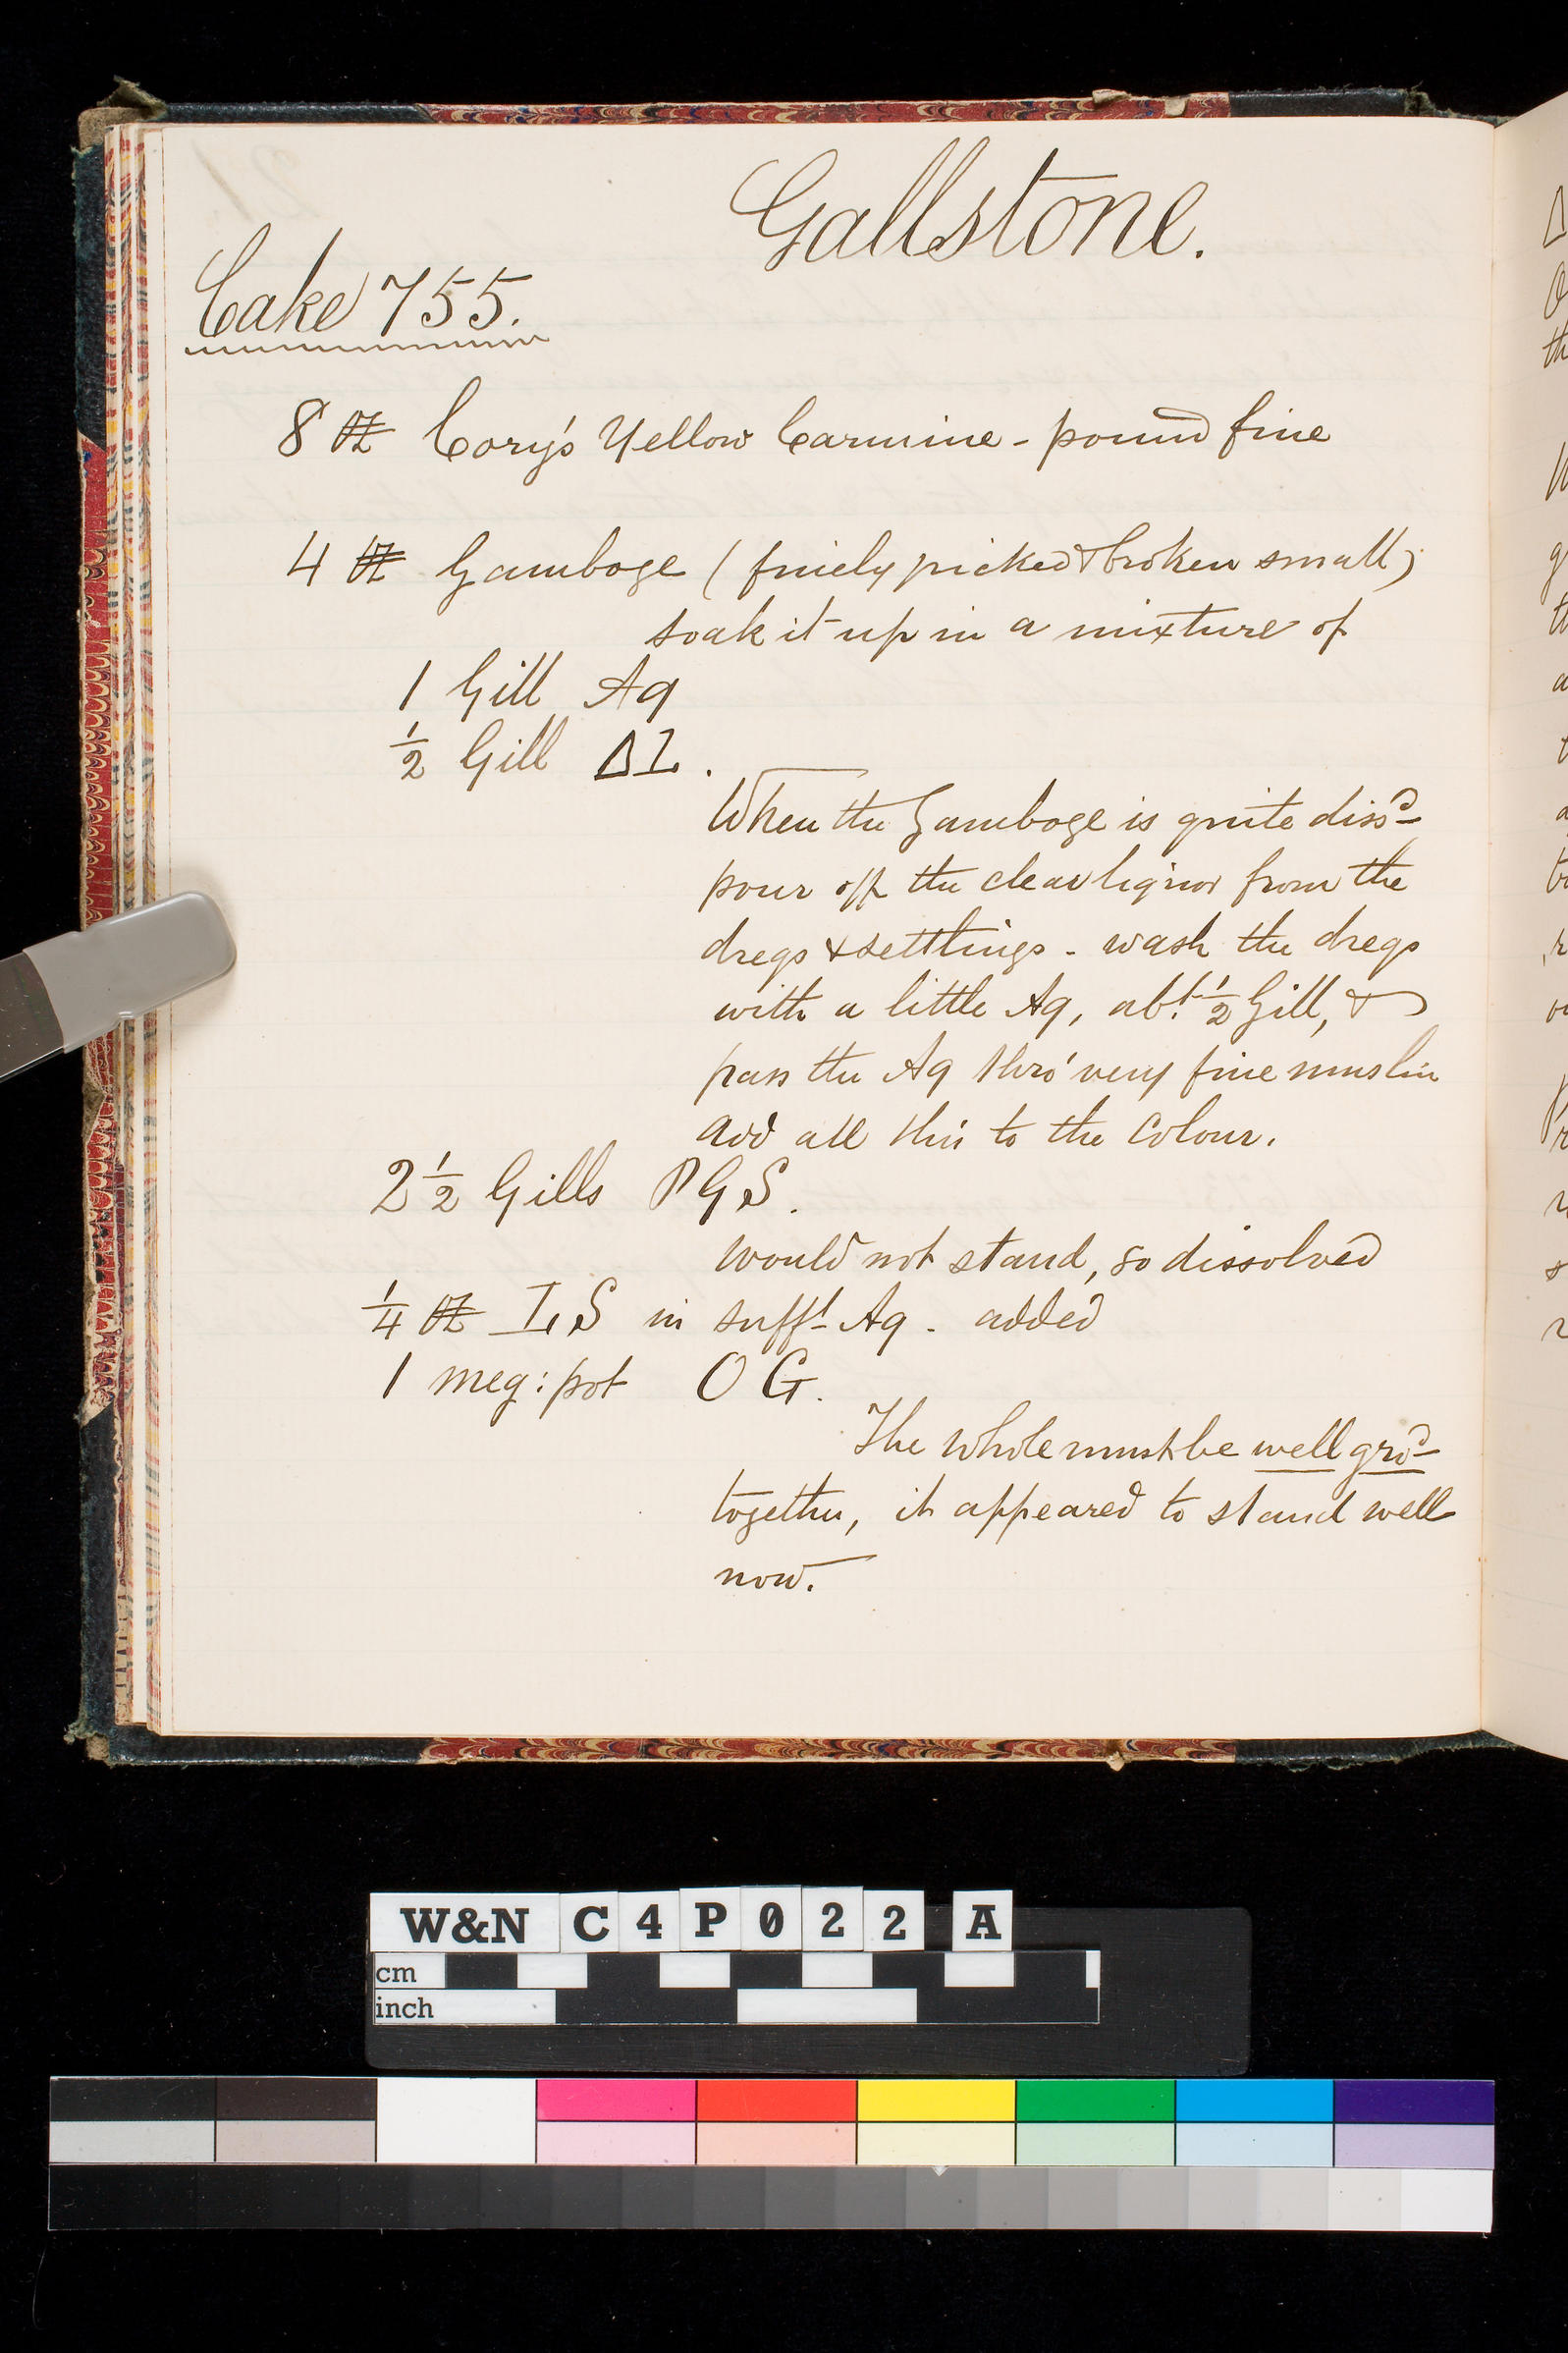 Gallstone.
Cake 755.
8 oz Cory's Yellow Carmine - pound fine
4 oz Gamboge (finely picked & broken small)
soak it up in a mixture of
1 Gill Aq
½ Gill Δ I.
When the Gamboge is quite diss^d
pour off the clear liquor from the
dregs & settlings - wash the dregs
with a little Aq, ab^t. ½ Gill, &
pass the Aq thro' very fine muslin
add all this to the colour.
2½ Gills P G S.
would not stand, so dissolved
¼ oz I, S in suff^t Aq. added
1 meg: pot O G.
The whole must be well gro^d
together, it appeared to stand well
now.
W&N C4P022 A
cm
inch